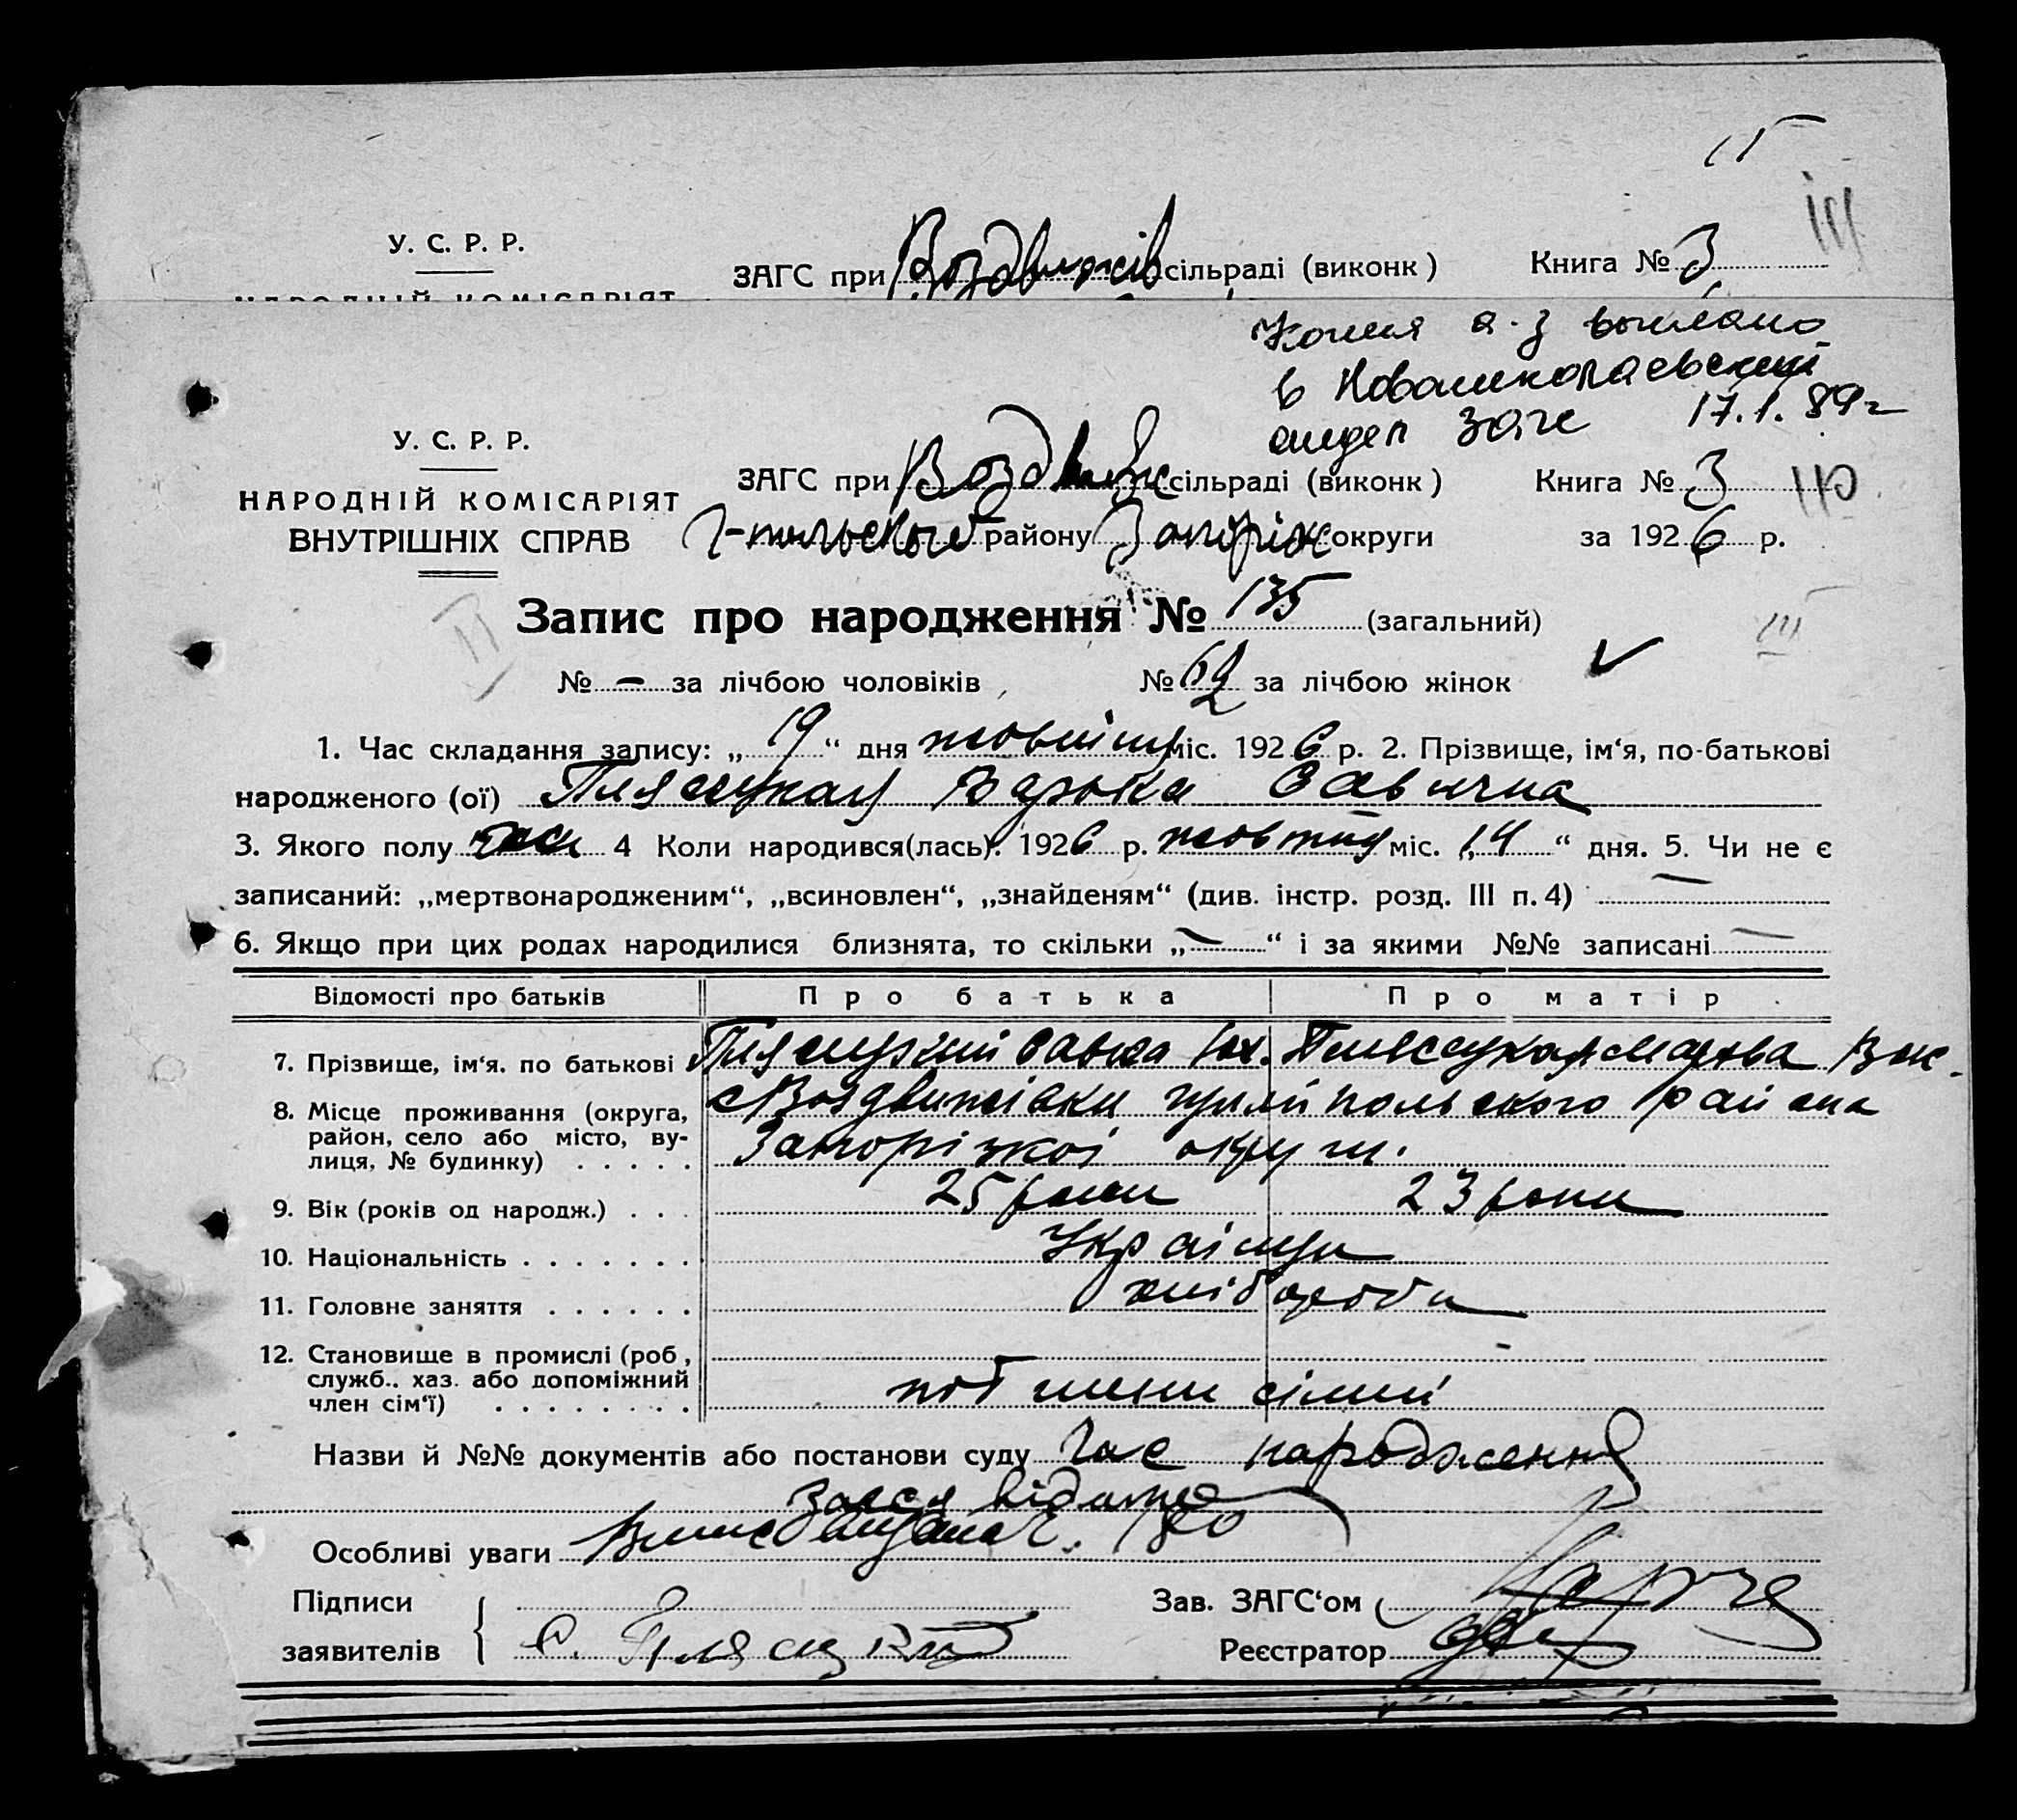 У. С. Р. Р.
ЗАГС при Воздвижів сільраді (виконк) Книга № 3
НАРОДНІЙ КОМІСАРІЯТ
Копия а.з выслана
в Новониколаевский
отдел Загс 17.1.89г
У. С. Р. Р.
НАРОДНІЙ КОМІСАРІЯТ
ВНУТРІШНІХ СПРАВ
ЗАГС при Воздвиж сільраді (виконк) Книга № 3
Г-польського району Запоріж округи за 1926 р.
Запис про народження № 135 (загальний)
№ - за лічбою чоловіків, № 62 за лічбою жінок
1. Час складання запису: „19“ дня жовтня міс. 1926 р. 2. Прізвище, ім‘я, по-батькові
народженого (ої) Пляцукая Варька Савична
3. Якого полу жін 4 Коли народився(лась). 1926 р. жовтня міс. „14“ дня. 5. Чи не є
записаний: „мертвонародженим“, „всиновлен“, „знайденям“ (див. інстр. розд. III п. 4) —
6. Якщо при цих родах народилися близнята, то скільки „—“ і за якими №№ записані —
Відомості про батьків Про батька Про матір
7. Прізвище, ім‘я. по батькові Савка Марфа
8. Місце проживання (округа, район, село або місто, вулиця, № будинку) с Воздвижівки Гуляйпольського района
Запоріжкої округи.
9. Вік (років од народж.) 25 роки 23 роки
10. Національність Українци
11. Головне заняття хлібороби
12. Становище в промислі (роб., служб., хаз. або допоміжний член сім‘ї) члени сімьи
Назви й №№ документів або постанови суду Час народження
відомо
Особливі уваги
Підписи
заявителів
Зав. ЗАГС‘ом
Реєстратор